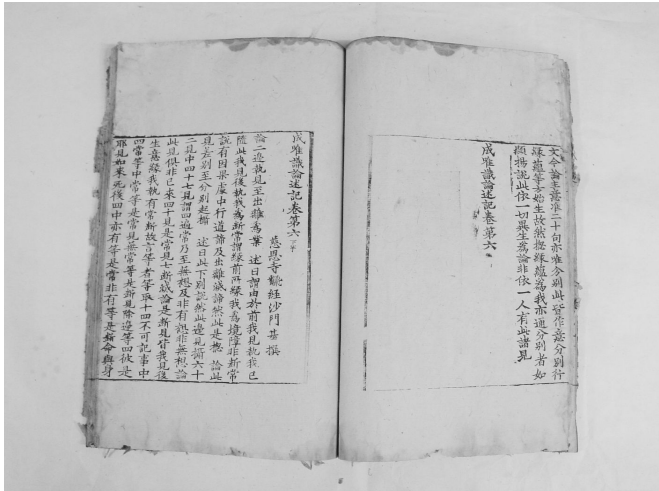 文今論主舊准二十句亦唯分別此登作意分別行
緣蘊等方始生故然總緣蘊為我亦通分別者如
顯揚說此依一切異生為論非依一人有此諸見
成唯識論述記卷第六
成唯識論述記卷第六
慈恩寺翻經沙門基撰
論二邊執見至出離為業 述曰謂由於前我見執我已
隨此我見後執我為斷常謂緣前所緣我為境障非斷常
說有因果處中行道諦及出離滅諦然此是總 論此
見差別至分別起攝 述曰此下別說然此邊見攝六十
二見中四十七見謂四遍常乃至無想及非有想非無想論
此見俱非已來四十見是常見七斷滅論是斷見皆我見後
生意緣我執有常斷故言等者等取十四不可記事中
四常等中常等是常見無常等是斷見除邊等四彼是
耶見如來死後四中亦有等是常非有等是斷命與身